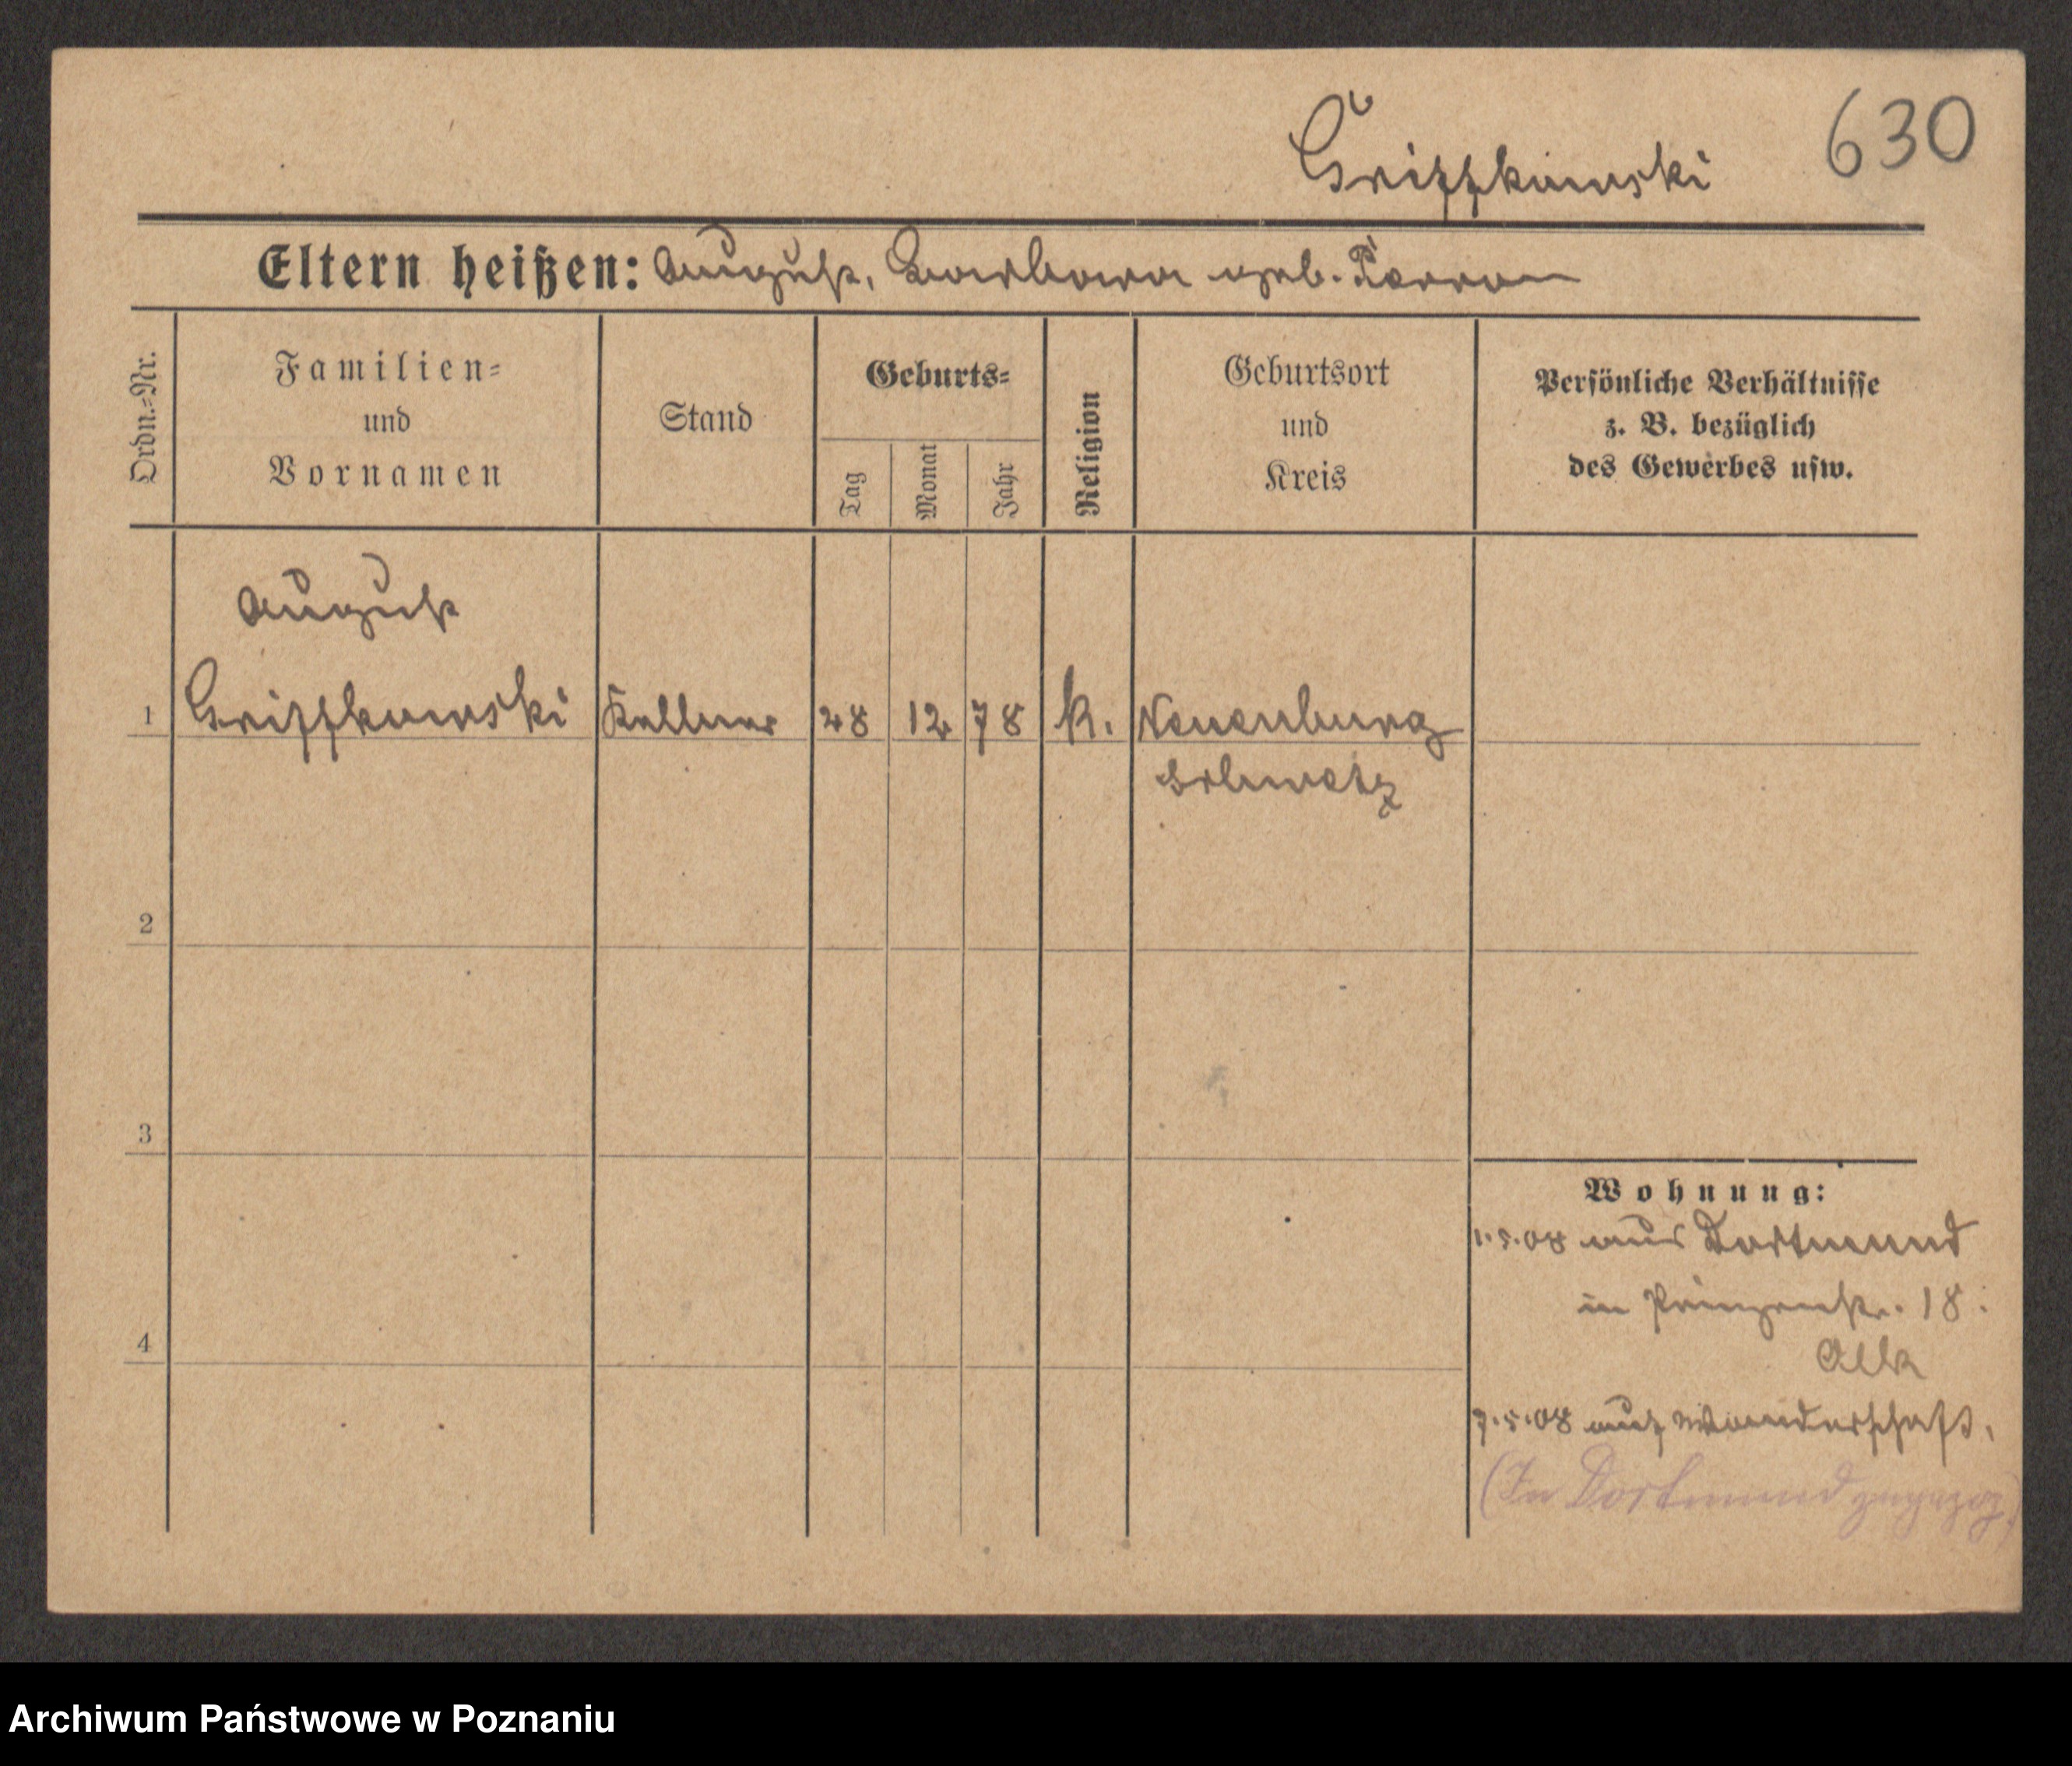 630
Eltern heißen: August, Barbara geb.
Ordn.-Nr.
Familien-
und
Vornamen
Stand
Geburts-
Tag
Monat
Jahr
Religion
Geburtsort
und
Kreis
Persönliche Verhältnisse
z. B. bezüglich
des Gewerbes usw.
August
1
Kellner
28
12
78
k.
Neuenburg
Schwetz
2
3
4
Wohnung:
1.5.08 aus Dortmund
in Prinzenstr. 18
7.5.08 auf Wanderschaft.
(In Dortmund zugezog.)
Archiwum Państwowe w Poznaniu